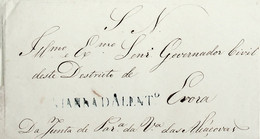 S. N.
Illmo. e Exmo. Senr. Governador Civil
deste Districto de
VIANNA DO ALENTº
Evora
Da Junta de Parª da Vª das Alcaçovas